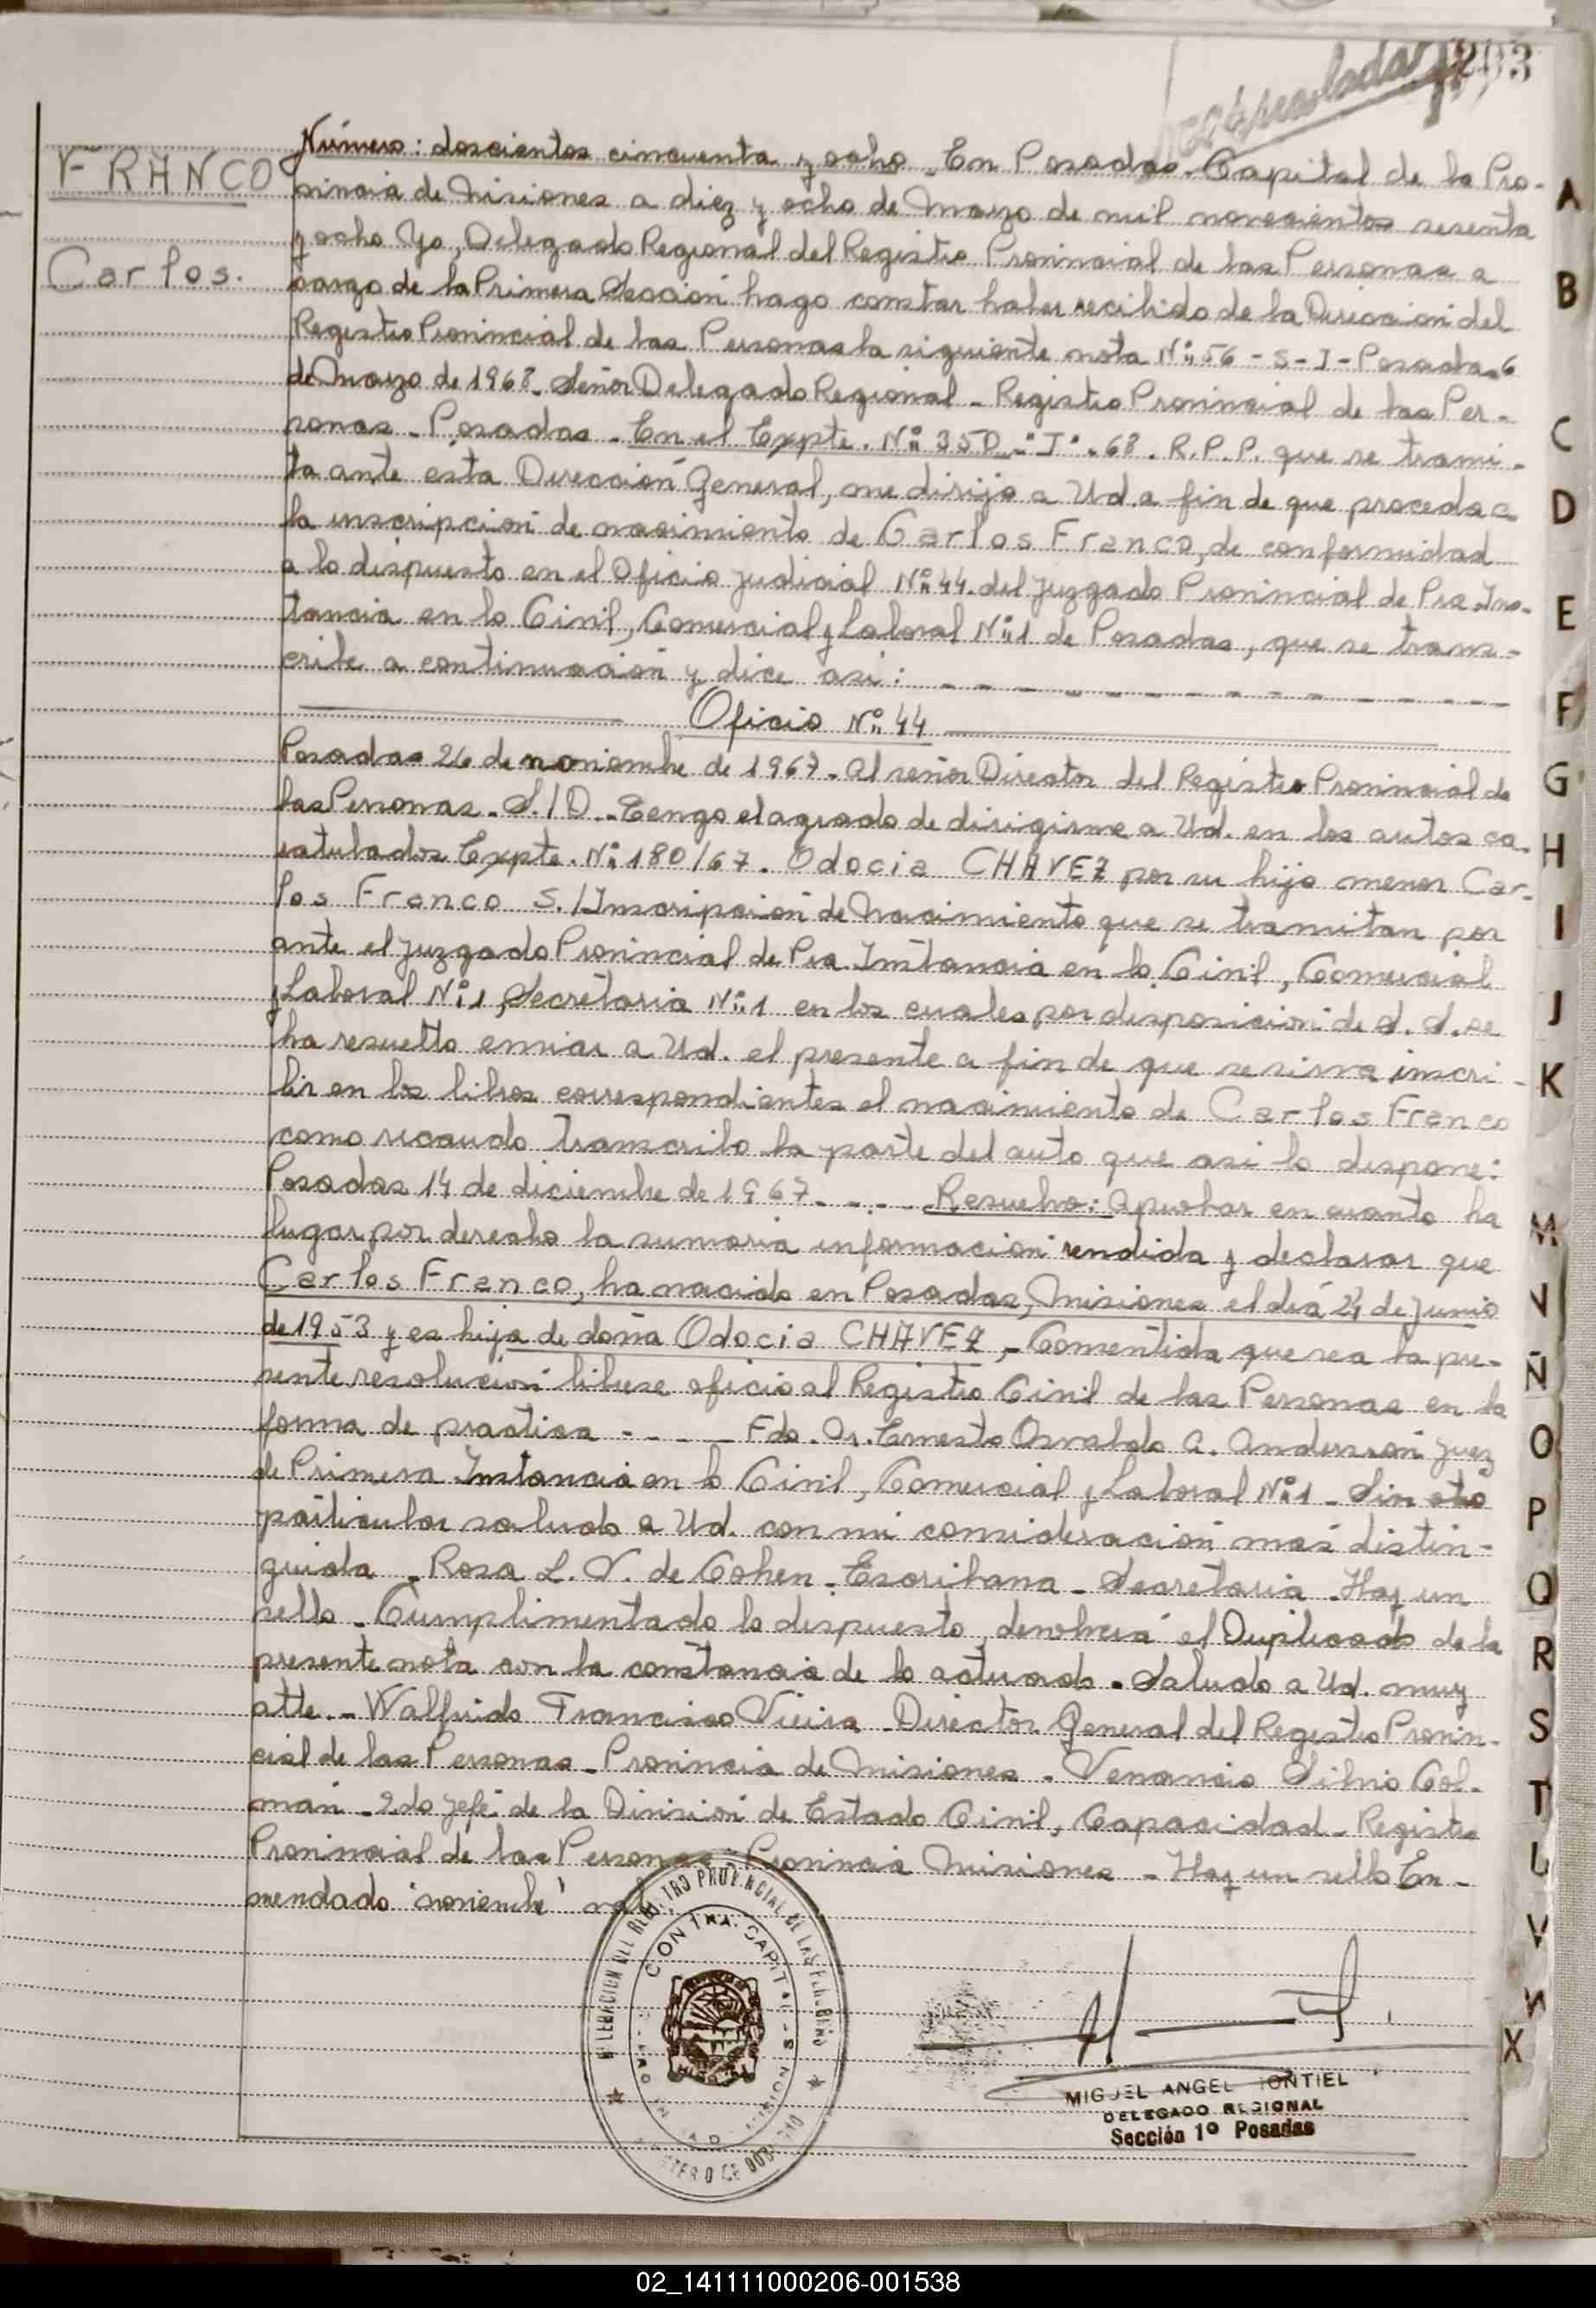 293
FRANCO
Carlos.
Número: doscientos cincuenta y ocho. En Posadas. Capital de la Pro-
vincia de Misiones a diez y ocho de Marzo de mil novecientos sesenta
y ocho Yo, Delegado Regional del Registro Provincial de las Personas a
cargo de la Primera Sección hago constar haber recibido de la Dirección del
Registro Provincial de las Personas la siguiente nota Nº 56 - S - I - Posadas 6
de Marzo de 1968. Señor Delegado Regional - Registro Provincial de las Per-
sonas - Posadas - En el Expte. Nº 350 - "I" - 68. R.P.P. que se trami-
ta ante ésta Dirección General, me dirijo a Ud. a fin de que proceda a
la inscripción de nacimiento de Carlos Franco, de conformidad
a lo dispuesto en el Oficio Judicial Nº 44. del Juzgado Provincial de Pra. Ins-
tancia en lo Civil, Comercial y Laboral Nº 1 de Posadas, que se trans-
cribe a continuación y dice así: - - - - - - - - - - - - -
Oficio Nº 44
Posadas 26 de noviembre de 1967. Al señor Director del Registro Provincial de
las Personas. S. / D. Tengo el agrado de dirigirme a Ud. en los autos ca-
ratulados Expte. Nº 180/67. Odocia CHAVEZ por su hijo menor Car-
los Franco S./Inscripción de Nacimiento que se tramitan por
ante el Juzgado Provincial de Pra. Instancia en lo Civil, Comercial
y Laboral Nº 1, Secretaria Nº 1 en los cuales por disposición de S. S. se
ha resuelto enviar a Ud. el presente a fin de que se sirva inscri-
bir en los libros correspondientes el nacimiento de Carlos Franco
como recaudo transcribo la parte del auto que así lo dispone:
Posadas 14 de diciembre de 1967. - . - . - Resuelvo: Aprobar en cuanto ha
lugar por derecho la sumaria información rendida y declarar que
Carlos Franco, ha nacido en Posadas, Misiones el día 24 de Junio
de 1953 y es hijo de doña Odocia CHAVEZ, - Consentida que sea la pre-
sente resolución líbrese oficio al Registro Civil de las Personas en la
forma de practica - . - - - Fdo. Dr. Ernesto Osvaldo A. Andersson Juez
de Primera Instancia en lo Civil, Comercial y Laboral Nº 1 - Sin otro
particular saludo a Ud. con mi consideración más distin-
guida - Rosa L. V. de Cohen - Escribana - Secretaria - Hay un
sello - Cumplimentado lo dispuesto, devolverá el Duplicado de la
presente nota con la constancia de lo actuado. Saludo a Ud. muy
atte. - Walfrido Francisco Vieira - Director General del Registro Provin-
cial de las Personas - Provincia de Misiones - Venancio Silvio Gol-
mán - 2do jefe de la División de Estado Civil, Capacidad - Registro
Provincial de las Personas - Provincia Misiones - Hay un sello En-
mendado "noviembre"
MIGUEL ANGEL MONTIEL
DELEGADO REGIONAL
Sección 1º Posadas
A
B
C
D
E
F
G
H
I
J
K
M
N
Ñ
O
P
Q
R
S
T
U
V
W
X
02_141111000206-001538